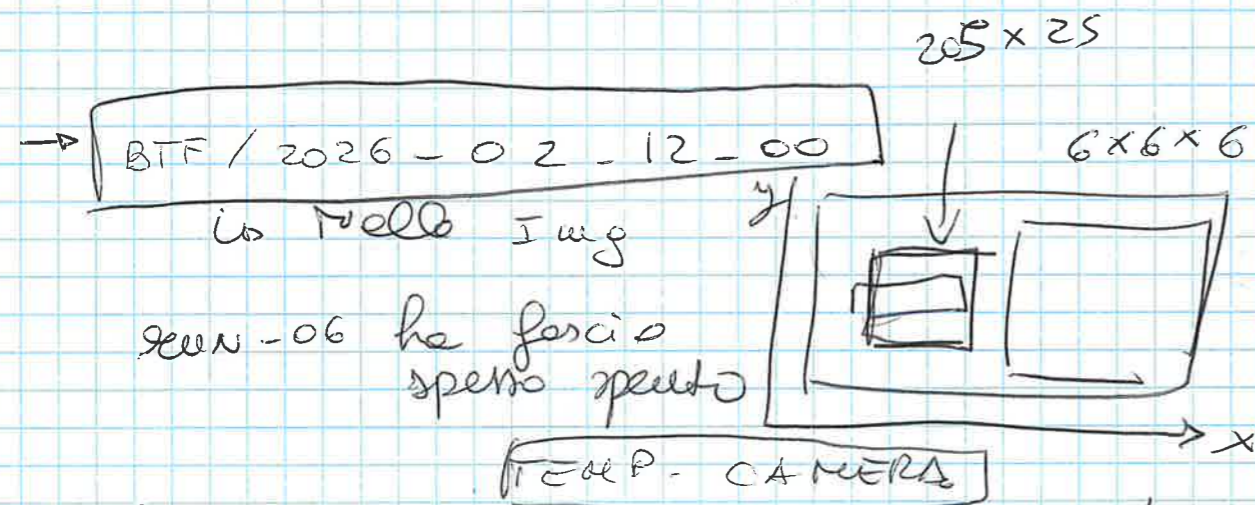 205 × 25
→ BTF / 2026 - 02 - 12 - 00
6×6×6
y
Img
RUN-06 ha fascio
spesso spento
x
TEMP. CAMERA